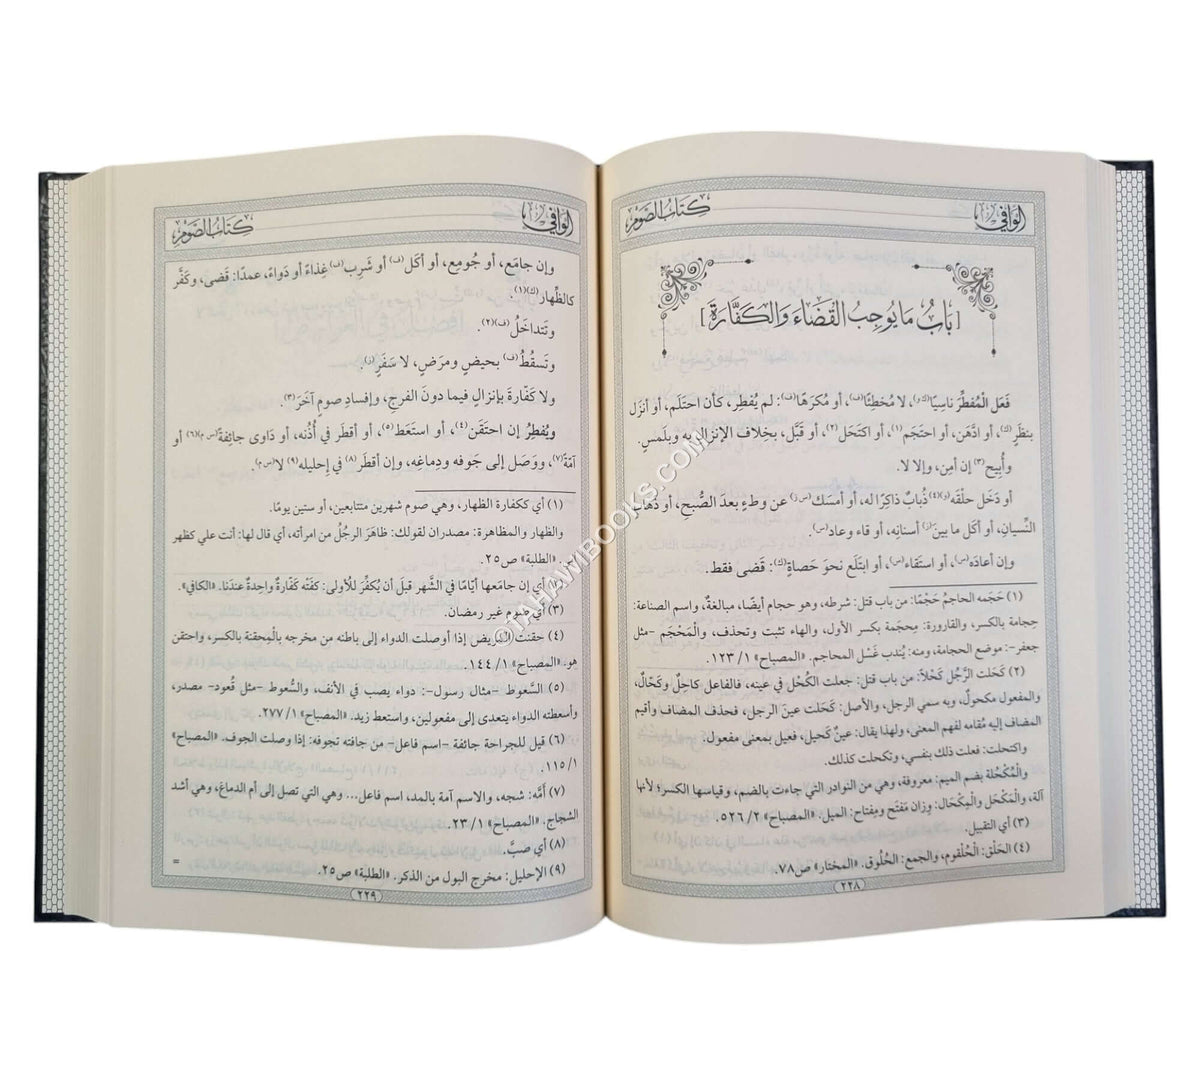 الوافي
كتاب الصوم
[بَابُ مَا يُوجِبُ القَضَاءَ وَالكَفَّارَةَ]
فَعَل الْمُفطِّرَ ناسِيًا(ك و)، لا مُخطِئًا(ف)، أو مُكرَهًا(ف): لم يُفطِر، كأن احتَلَم، أو أنزَل
بنظَرٍ(ك)، أو ادَّهَن، أو احتَجَم(١)، أو اكتَحَل(٢)، أو قَبَّل، بخِلاف الإنزالِ به وبلَمسٍ.
وأُبِيح(٣) إن أمِن، وإلا لا.
أو دَخَل حلْقَه(و)(٤) ذُبابٌ ذاكِرًا له، أو أمسَك(س ز) عن وطءٍ بعدَ الصُّبحِ، أو ذَهاب
النِّسيانِ، أو أكَل ما بينَ(ز) أسنانِه، أو قاء وعاد(س).
وإن أعادَه(س)، أو استَقاء(س)، أو ابتَلَع نحوَ حَصاةٍ(ك): قَضى فقط.
(١) حَجَمه الحاجمُ حَجْمًا: من باب قتل: شرطه، وهو حجام أيضًا، مبالغةٌ، واسم الصناعة:
حِجامة بالكسر، والقارورة: مِحجَمة بكسر الأول، والهاء تثبت وتحذف، والْمَحْجَم -مثل
جعفر-: موضع الحجامة، ومنه: يُندب غَسْل المحاجم. «المصباح» ١/ ١٢٣.
(٢) كَحَلت الرَّجُل كَحْلاً: من باب قتل: جعلت الكُحْل في عينه، فالفاعل كاحِلٌ وكَحَّالٌ،
والمفعول مكحولٌ، وبه سمي الرجل، والأصل: كَحَلت عينَ الرجل، فحذف المضاف وأقيم
المضاف إليه مُقامه لفهم المعنى، ولهذا يقال: عينٌ كَحيل، فعيل بمعنى مفعول.
واكتحلت: فعلت ذلك بنفسي، وتكحلت كذلك.
والْمُكْحُلة بضم الميم: معروفة، وهي من النوادر التي جاءت بالضم، وقياسها الكسر؛ لأنها
آلة، والْمَكْحَل والْمِكْحَال: وِزان مَفتَح ومِفتاح: الميل. «المصباح» ٢/ ٥٢٦.
(٣) أي التقبيل.
(٤) الحَلْق: الْحُلْقوم، والجمع: الحُلُوق. «المختار» ص٧٨.
٢٢٨
الوافي
كتاب الصوم
وإن جامَع، أو جُومِع، أو أكَل(ف) أو شَرِب(ف) غِذاءً أو دَواءً، عمدًا: قَضى، وكَفَّر
كالظِّهار(ك)(١).
وتَتداخَلُ(ف)(٢).
وتَسقُطُ(ف) بحيضٍ ومرَضٍ، لا سَفَرٍ(ز).
ولا كَفّارةَ بإنزالٍ فيما دونَ الفرجِ، وإفسادِ صومٍ آخَرَ(٣).
ويُفطِرُ إن احتَقَن(٤)، أو استَعَط(٥)، أو أقطَر في أُذُنه، أو دَاوى جائِفةً(س م)(٦) أو
آمّةً(٧)، ووَصَل إلى جَوفه ودِماغِه، وإن أقطَر(٨) في إحليله(٩) لا(س م).
(١) أي ككفارة الظهار، وهي صوم شهرين متتابعين، أو ستين يومًا.
والظهار والمظاهرة: مصدران لقولك: ظاهَرَ الرجُلُ من امرأته، أي قال لها: أنت علي كظهر
أمي. «الطلبة» ص٢٥.
(٢) أي إن جامَعها أيّامًا في الشَّهر قبلَ أن يُكفِّرَ للأولى: كَفَتْه كَفّارةٌ واحِدةٌ عندَنا. «الكافي».
(٣) أي صوم غير رمضان.
(٤) حقنت المريض إذا أوصلت الدواء إلى باطنه من مخرجه بالْمِحقنة بالكسر، واحتقن
هو. «المصباح» ١/ ١٤٤.
(٥) السَّعوط -مثال رسول-: دواء يصب في الأنف، والسُّعوط -مثل قُعود- مصدر،
وأسعطته الدواء يتعدى إلى مفعولين، واستعط زيد. «المصباح» ١/ ٢٧٧.
(٦) قيل للجراحة جائفة -اسم فاعل- من جافته تجوفه: إذا وصلت الجوف. «المصباح»
١/ ١١٥.
(٧) أمَّه: شجه، والاسم آمة بالمد، اسم فاعل... وهي التي تصل إلى أم الدماغ، وهي أشد
الشجاج. «المصباح» ١/ ٢٣.
(٨) أي صبَّ.
(٩) الإحليل: مخرج البول من الذكر. «الطلبة» ص٢٥.
=
٢٢٩
©TAHAWIBOOKS.COM